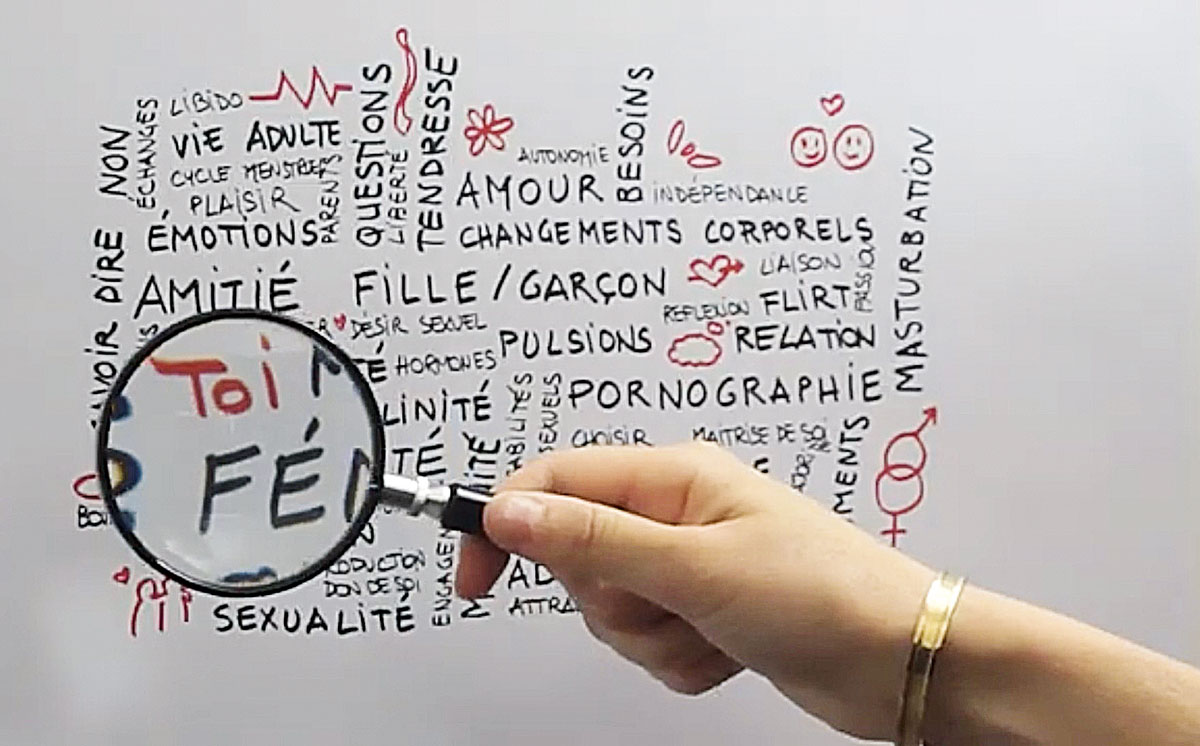 LIBIDO
ÉCHANGES
SAVOIR DIRE NON
VIE ADULTE
CYCLE MENSTRUEL
PLAISIR
PARENTS
ÉMOTIONS
QUESTIONS
LIBERTÉ
TENDRESSE
AUTONOMIE
BESOINS
AMOUR
INDÉPENDANCE
CHANGEMENTS CORPORELS
MASTURBATION
AMITIÉ
FILLE / GARÇON
LIAISON
REFLEXION
FLIRT
DÉSIR SEXUEL
PULSIONS
RELATION
TOI
HORMONES
PORNOGRAPHIE
LINITÉ
FÉ
TÉ
CHOISIR
MAITRISE DE SOI
MENTS
SEXUELS
RODUCTION
DON DE SOI
ENGAGEM
AD
ATTRA
SEXUALITÉ